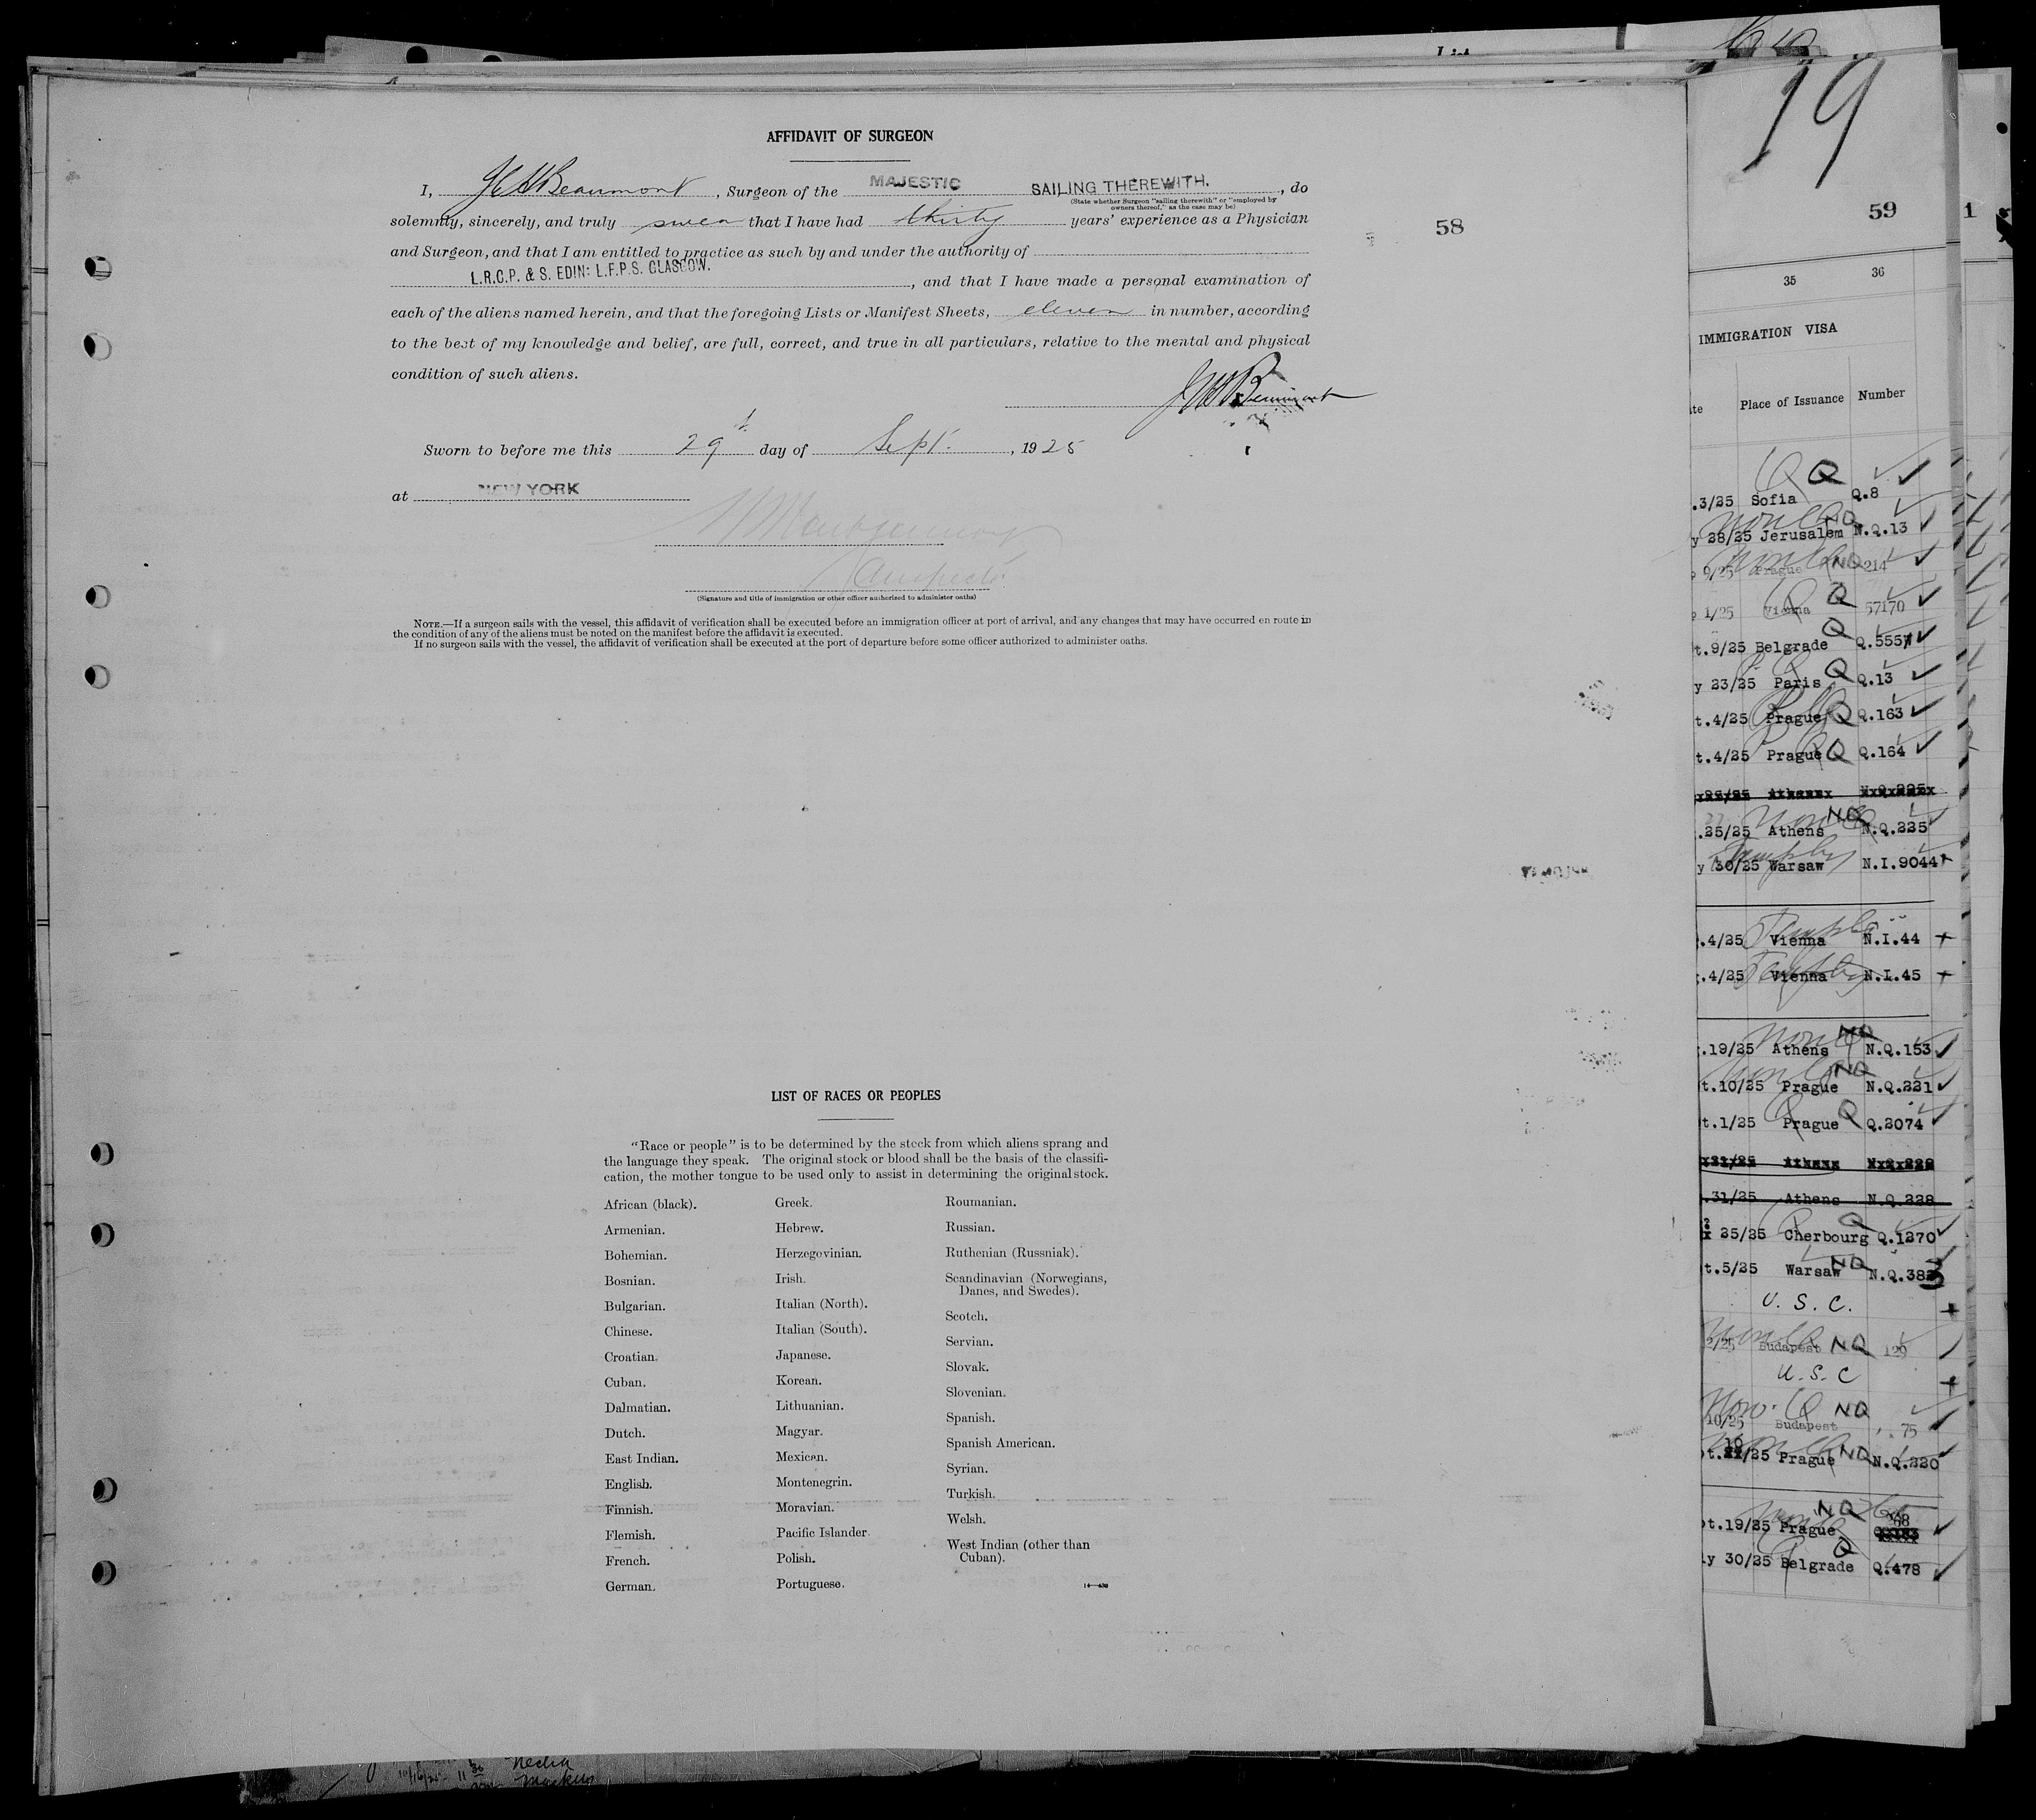 AFFIDAVIT OF SURGEON
I, J H Beaumont, Surgeon of the MAJESTIC SAILING THEREWITH., do
(State whether Surgeon "sailing therewith" or "employed by
owners thereof," as the case may be)
solemnly, sincerely, and truly swear that I have had thirty years' experience as a Physician
and Surgeon, and that I am entitled to practice as such by and under the authority of
L.R.C.P. & S. EDIN: L.F.P.S. GLASGOW.
, and that I have made a personal examination of
each of the aliens named herein, and that the foregoing Lists or Manifest Sheets, eleven in number, according
to the best of my knowledge and belief, are full, correct, and true in all particulars, relative to the mental and physical
condition of such aliens.
J H Beaumont
Sworn to before me this 29 day of Sept., 1925
at NEW YORK
(Signature and title of immigration or other officer authorized to administer oaths)
NOTE.—If a surgeon sails with the vessel, this affidavit of verification shall be executed before an immigration officer at port of arrival, and any changes that may have occurred en route in
the condition of any of the aliens must be noted on the manifest before the affidavit is executed.
If no surgeon sails with the vessel, the affidavit of verification shall be executed at the port of departure before some officer authorized to administer oaths.
58
LIST OF RACES OR PEOPLES
"Race or people" is to be determined by the stock from which aliens sprang and
the language they speak. The original stock or blood shall be the basis of the classifi-
cation, the mother tongue to be used only to assist in determining the original stock.
African (black).
Armenian.
Bohemian.
Bosnian.
Bulgarian.
Chinese.
Croatian.
Cuban.
Dalmatian.
Dutch.
East Indian.
English.
Finnish.
Flemish.
French.
German.
Greek.
Hebrew.
Herzegovinian.
Irish.
Italian (North).
Italian (South).
Japanese.
Korean.
Lithuanian.
Magyar.
Mexican.
Montenegrin.
Moravian.
Pacific Islander.
Polish.
Portuguese.
Roumanian.
Russian.
Ruthenian (Russniak).
Scandinavian (Norwegians,
Danes, and Swedes).
Scotch.
Servian.
Slovak.
Slovenian.
Spanish.
Spanish American.
Syrian.
Turkish.
Welsh.
West Indian (other than
Cuban).
19
59
1
35 36
IMMIGRATION VISA
Place of Issuance Number
Q Q
.3/25 Sofia Q.8
NQ
y 28/25 Jerusalem N.Q.13
9/25 Prague NQ 214
1/25 Vienna Q 57170
t.9/25 Belgrade Q Q.555
y 23/25 Paris Q Q.13
t.4/25 Prague Q Q.163
t.4/25 Prague Q Q.164
NQ
.25/25 Athens N.Q.225
y 30/25 Warsaw N.I.9044
.4/25 Vienna N.I.44
.4/25 Vienna N.I.45
NQ
.19/25 Athens N.Q.153
NQ
t.10/25 Prague N.Q.221
t.1/25 Prague Q Q.2074
.31/25 Athens N.Q.228
25/25 Cherbourg Q Q.1270
t.5/25 Warsaw NQ N.Q.383
U. S. C.
2/25 Budapest NQ 129
U. S. C
Non. Q NQ
10/25 Budapest 75
t. /25 Prague NQ N.Q.220
NQ
t.19/25 Prague 68
y 30/25 Belgrade Q Q.478